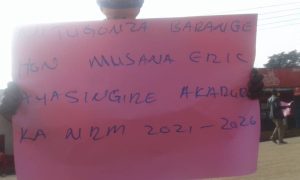 BARANGE
HON MUSANA ERIC
AYASINGIRE AKARURU
KA NRM 2021-2026